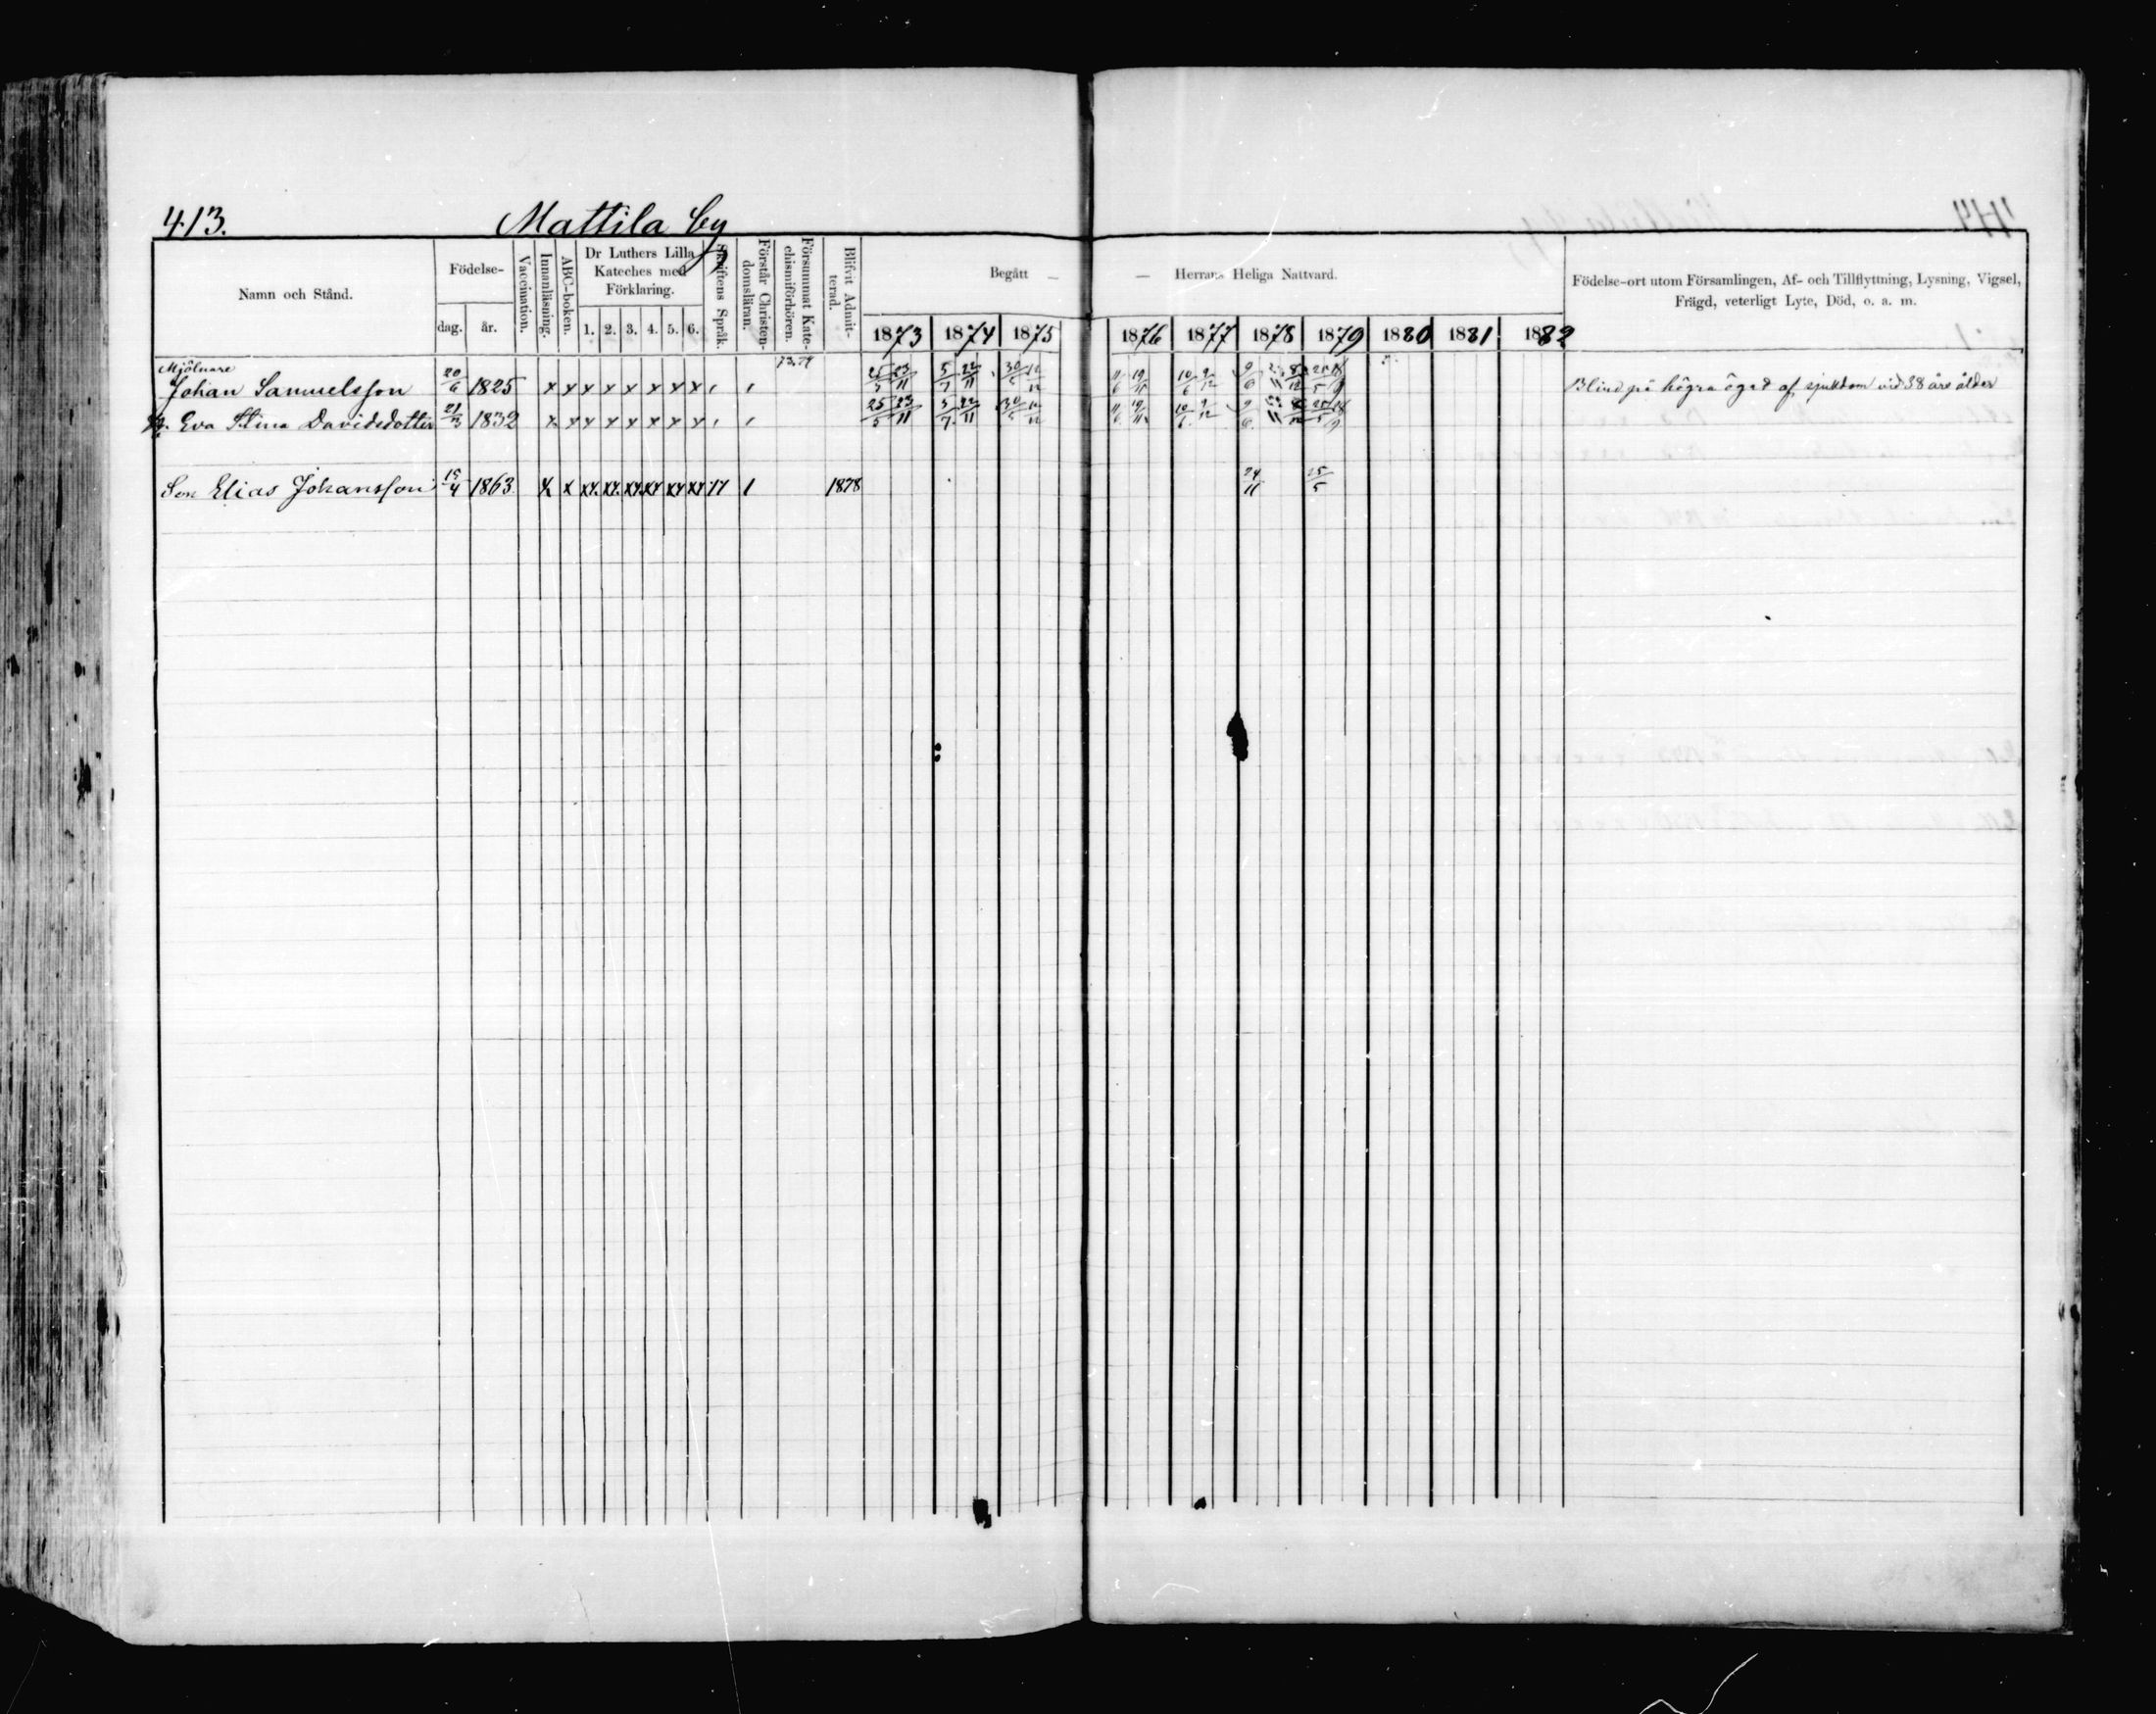 413. Mattila by
Namn och Stånd.
Födelse-
dag. år.
Vaccination.
Innanläsning.
ABC-boken.
Dr Luthers Lilla
Kateches med
Förklaring.
1. 2. 3. 4. 5. 6.
Skriftens Språk.
Förstår Christen-
domsläran.
Försummat Kate-
chismiförhören.
Blifvit Admit-
terad.
Begått —
— Herrans Heliga Nattvard.
1873 1874 1875 1876 1877 1878 1879 1880 1881 1882
Födelse-ort utom Församlingen, Af- och Tillflyttning, Lysning, Vigsel,
Frägd, veterligt Lyte, Död, o. a. m.
Mjölnare
Johan Samuelsson 20/6 1825 x x x x x x x x Blind på högra ögat af sjukdom vid 38 års ålder
Eva Stina Davidsdotter 21/3 1832 x x x x x x x x 25/5 23/11 5/7 22/11 30/5
Son Elias Johansson 15/4 1863 1878 24/11 25/5